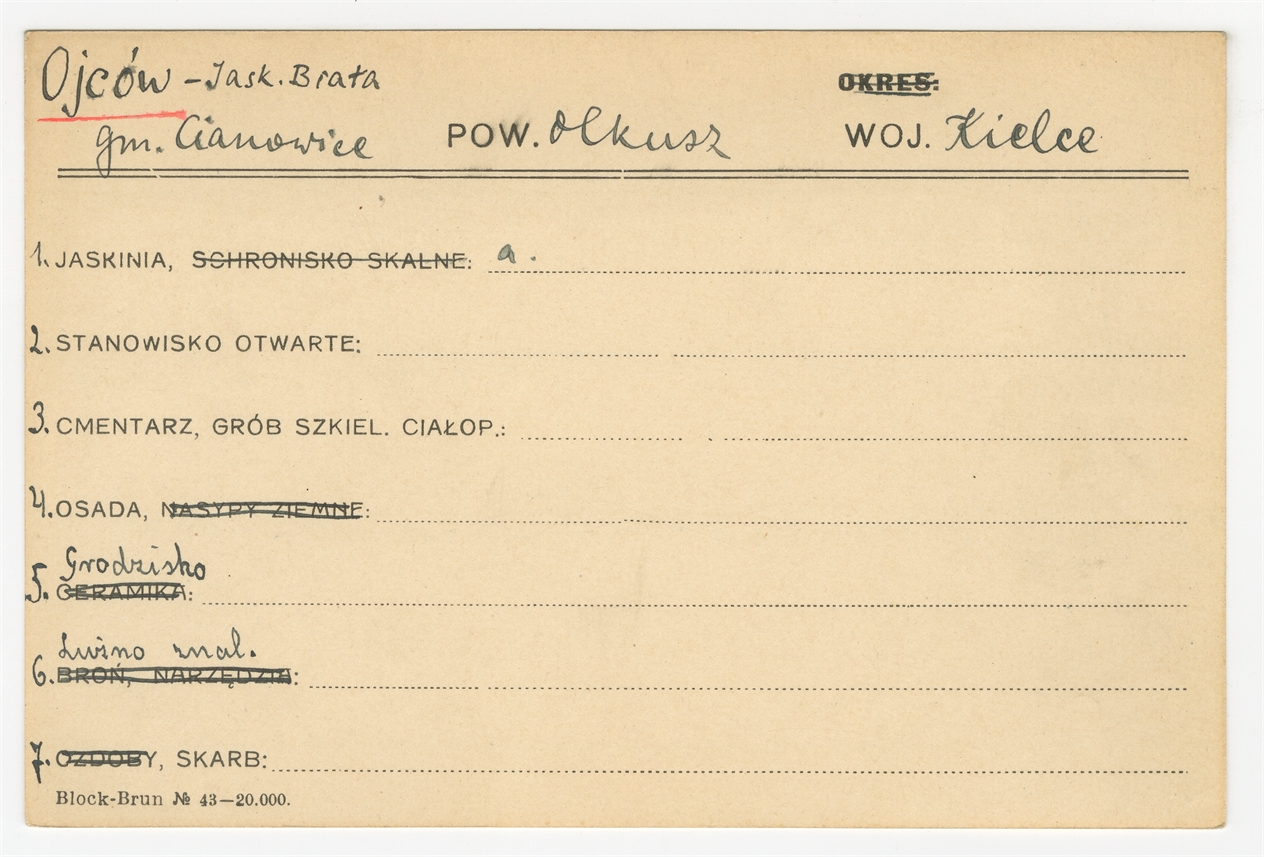 Ojców – Jask. Brata OKRES:
gm. Cianowice POW. Olkusz WOJ. Kielce
1. JASKINIA, SCHRONISKO SKALNE: a.
2. STANOWISKO OTWARTE:
3. CMENTARZ, GRÓB SZKIEL. CIAŁOP.:
4. OSADA, NASYPY ZIEMNE:
Grodzisko
5. CERAMIKA:
Luźno znal.
6. BROŃ, NARZĘDZIA:
7. OZDOBY, SKARB:
Block-Brun № 43—20.000.